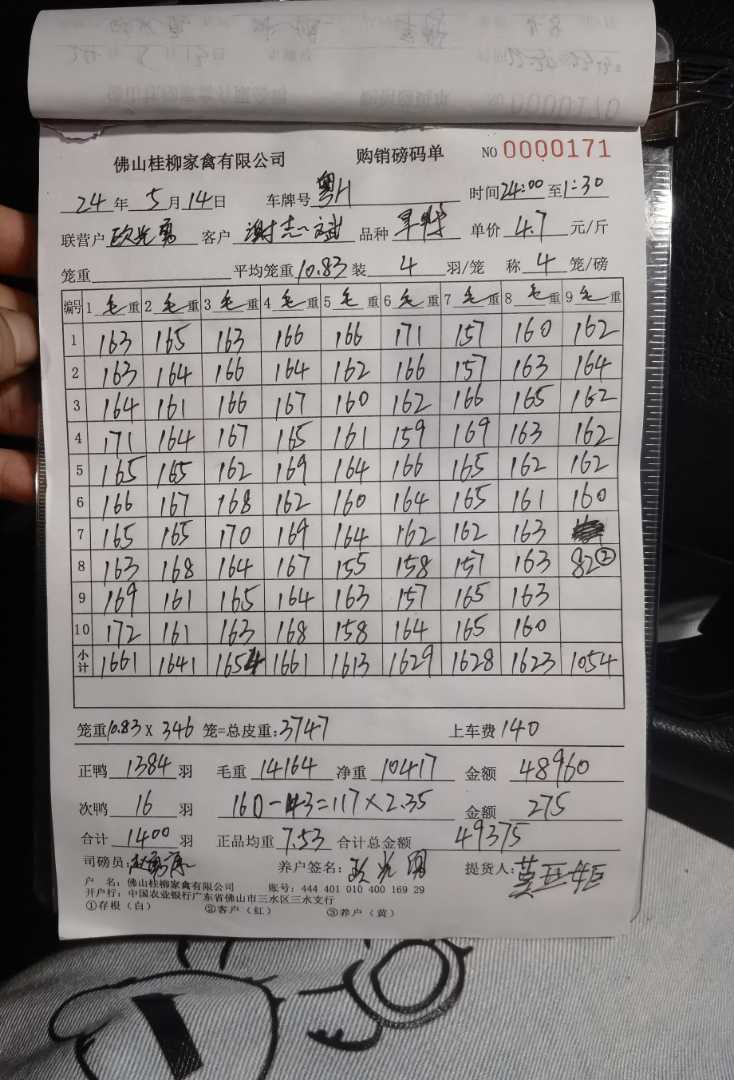 佛山桂柳家禽有限公司 购销磅码单 NO 0000171
24年5月14日 车牌号 粤H 时间24:00至1:30
联营户 欧光勇 客户 谢志斌 品种 单价 4.7 元/斤
笼重 平均笼重10.83装 4 羽/笼 称 4 笼/磅
编号 1毛重 2毛重 3毛重 4毛重 5毛重 6毛重 7毛重 8毛重 9毛重
1 163 165 163 166 166 171 157 160 162
2 163 164 166 164 162 166 157 163 164
3 164 161 166 167 160 162 166 165 162
4 171 164 167 165 161 159 169 163 162
5 165 165 162 169 164 166 165 162 162
6 166 167 168 162 160 164 165 161 160
7 165 165 170 169 164 162 162 163
8 163 168 164 167 155 158 157 163 82②
9 169 161 165 164 163 157 165 163
10 172 161 163 168 158 164 165 160
小计 1661 1641 1654 1661 1613 1629 1628 1623 1054
笼重10.83 x 346 笼=总皮重:3747 上车费 140
正鸭 1384 羽 毛重 14164 净重 10417 金额 48960
次鸭 16 羽 160-43=117×2.35 金额 275
合计 1400 羽 正品均重 7.53 合计总金额 49375
司磅员: 养户签名: 欧光勇 提货人:
户 名: 佛山桂柳家禽有限公司 账号: 444 401 010 400 169 29
开户行: 中国农业银行广东省佛山市三水区三水支行
①存根（白） ②客户（红） ③养户（黄）